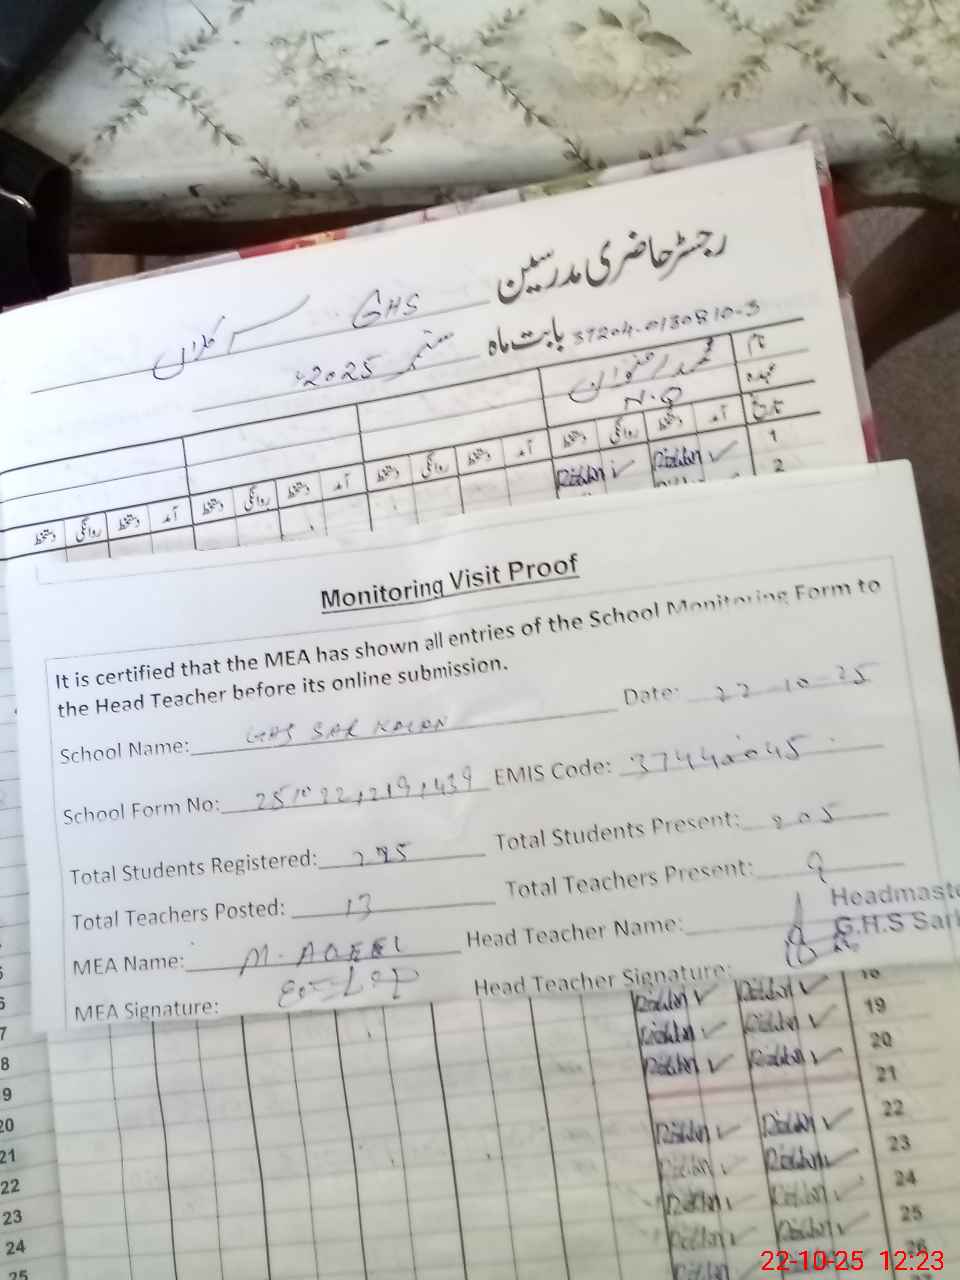 رجسٹر حاضری مدرسین GHS سر کلاں
بابت ماہ ستمبر 2025ء 37204-0130810-3
نام محمد رضوان
عہدہ N.Q
تاریخ آمد دستخط روانگی دستخط آمد دستخط روانگی دستخط آمد دستخط روانگی دستخط آمد دستخط روانگی دستخط
1 Rizwan ✓ Rizwan ✓
2
Monitoring Visit Proof
It is certified that the MEA has shown all entries of the School Monitoring Form to
the Head Teacher before its online submission.
School Name: GHS SAR KALAN Date: 22-10-25
School Form No: EMIS Code: 37440045
Total Students Registered: Total Students Present: 205
Total Teachers Posted: 13 Total Teachers Present: 9
MEA Name: M. AQEEL Head Teacher Name: Headmaste
G.H.S Sark
MEA Signature: Head Teacher Signature:
18 Rizwan ✓ Rizwan ✓
19 Rizwan ✓ Rizwan ✓
20 Rizwan ✓ Rizwan ✓
21
22 Rizwan ✓ Rizwan ✓
23 Rizwan ✓ Rizwan ✓
24 Rizwan ✓ Rizwan ✓
25 Rizwan ✓ Rizwan ✓
26 Rizwan Rizwan ✓
6
7
8
9
20
21
22
23
24
25
22-10-25 12:23